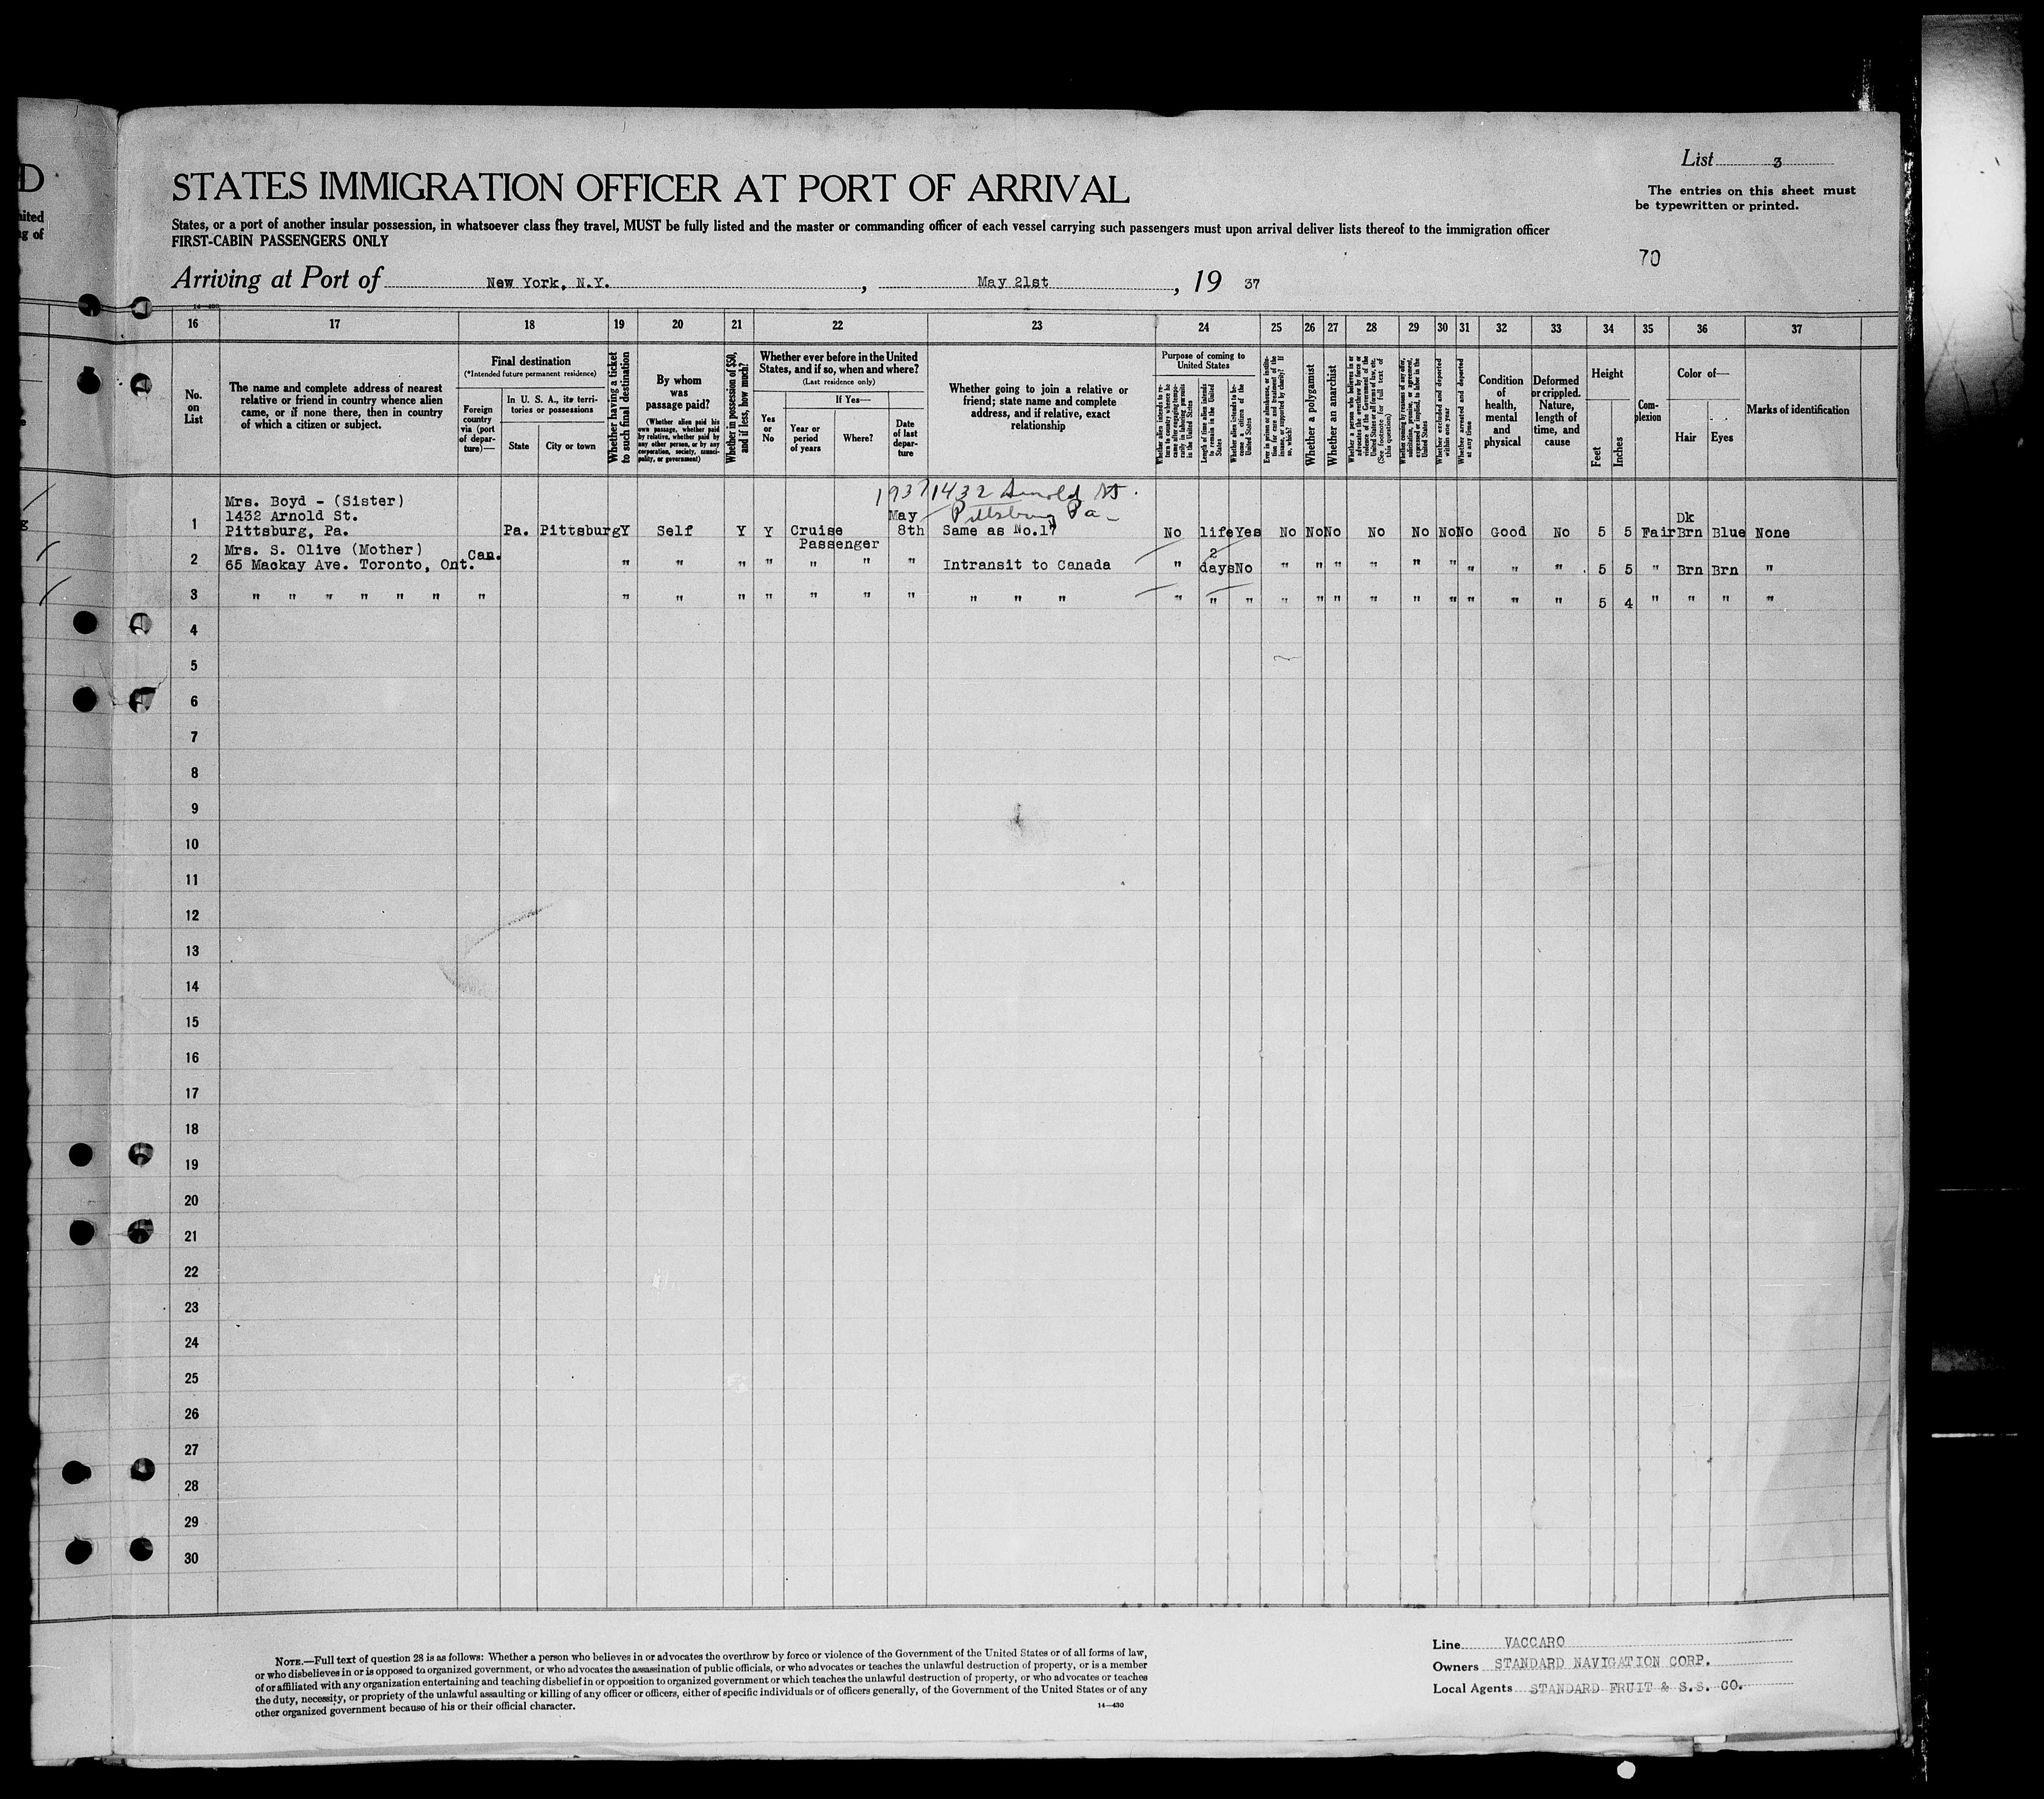 D
List 3
STATES IMMIGRATION OFFICER AT PORT OF ARRIVAL
The entries on this sheet must
be typewritten or printed.
States, or a port of another insular possession, in whatsoever class they travel, MUST be fully listed and the master or commanding officer of each vessel carrying such passengers must upon arrival deliver lists thereof to the immigration officer
FIRST-CABIN PASSENGERS ONLY
70
Arriving at Port of New York, N.Y., May 21st, 19 37
14—430
16 17 18 19 20 21 22 23 24 25 26 27 28 29 30 31 32 33 34 35 36 37
No. on List
The name and complete address of nearest relative or friend in country whence alien came, or if none there, then in country of which a citizen or subject.
Final destination
(*Intended future permanent residence)
Foreign country via (port of departure)—
In U. S. A., its territories or possessions
State
City or town
Whether having a ticket to such final destination
By whom was passage paid?
(Whether alien paid his own passage, whether paid by relative, whether paid by any other person, or by any corporation, society, municipality, or government)
Whether in possession of $50, and if less, how much?
Whether ever before in the United States, and if so, when and where?
(Last residence only)
Yes or No
If Yes—
Year or period of years
Where?
Date of last departure
Whether going to join a relative or friend; state name and complete address, and if relative, exact relationship
Purpose of coming to United States
Whether alien intends to return to country whence he came after engaging temporarily in laboring pursuits in the United States
Length of time alien intends to remain in the United States
Whether alien intends to become a citizen of the United States
Ever in prison or almshouse, or institution for care and treatment of the insane, or supported by charity? If so, which?
Whether a polygamist
Whether an anarchist
(See footnote for full text of this question)
Whether excluded and deported within one year
Whether arrested and deported at any time
Condition of health, mental and physical
Deformed or crippled. Nature, length of time, and cause
Height
Feet
Inches
Complexion
Color of—
Hair
Eyes
Marks of identification
1937 1432 Arnold St.
Pittsburg Pa
Mrs. Boyd - (Sister)
1432 Arnold St. May Dk
1 Pittsburg, Pa. Pa. Pittsburg Y Self Y Y Cruise 8th Same as No.17 No life Yes No No No No No No No Good No 5 5 Fair Brn Blue None
Mrs. S. Olive (Mother) Can. Passenger 2
2 65 Mackay Ave. Toronto, Ont. " " " " " " " Intransit to Canada " days No " " " " " " " " " 5 5 " Brn Brn "
3 " " " " " " " " " " " " " " " " " " " " " " " " " " " " " 5 4 " " " "
4
5
6
7
8
9
10
11
12
13
14
15
16
17
18
19
20
21
22
23
24
25
26
27
28
29
30
NOTE.—Full text of question 28 is as follows: Whether a person who believes in or advocates the overthrow by force or violence of the Government of the United States or of all forms of law,
or who disbelieves in or is opposed to organized government, or who advocates the assassination of public officials, or who advocates or teaches the unlawful destruction of property, or is a member
of or affiliated with any organization entertaining and teaching disbelief in or opposition to organized government or which teaches the unlawful destruction of property, or who advocates or teaches
the duty, necessity, or propriety of the unlawful assaulting or killing of any officer or officers, either of specific individuals or of officers generally, of the Government of the United States or of any
other organized government because of his or their official character.
14—430
Line VACCARO
Owners STANDARD NAVIGATION CORP.
Local Agents STANDARD FRUIT & S.S. CO.